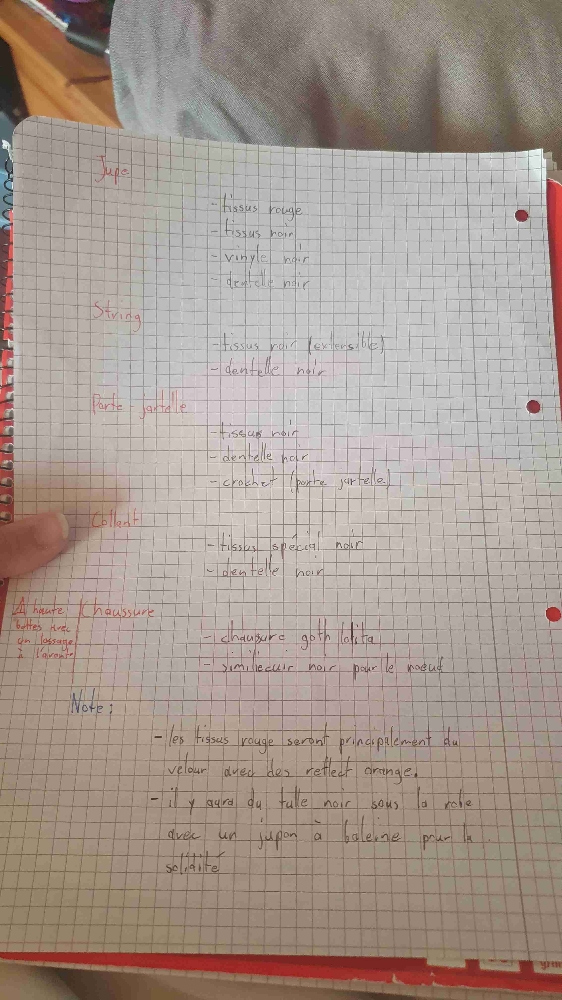 Jupe
- tissus rouge
- tissus noir
- vinyle noir
- dentelle noir
String
- tissus noir (extensible)
- dentelle noir
Porte-jartelle
- tissus noir
- dentelle noir
- crochet (porte jartelle)
Collent
- tissus spécial noir
- dentelle noir
Chaussure
haute
bottes avec
un lassage
à l'avant
- chausure goth lolita
- similiecuir noir pour le noeud
Note :
- les tissus rouge seront principalement du
velour avec des reflect orange.
- il y aura du tulle noir sous la robe
avec un jupon à baleine pour la
solidité